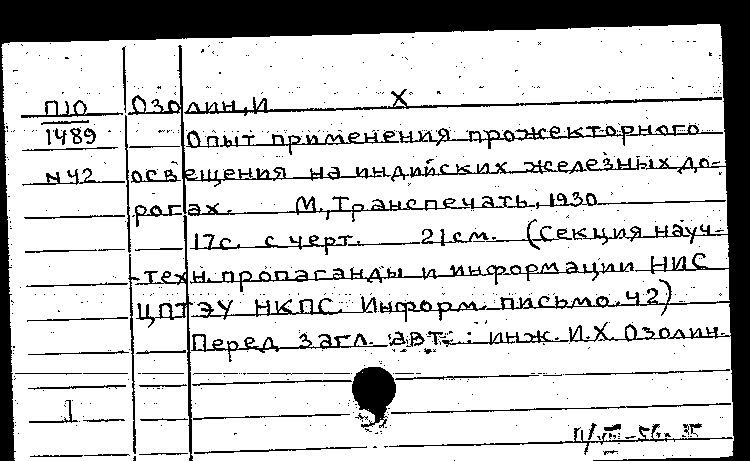 П10 Озолин, И X
1489 Опыт применения прожекторного
N42 освещения на индийских железных до-
рогах. М., Транспечать, 1930
17с. с черт. 21см. (Секция науч-
-техн. пропаганды и информации НИС
ЦПТЭУ НКПС. Информ. письмо. 42)
Перед загл. авт.: инж. И.Х. Озолин.
1